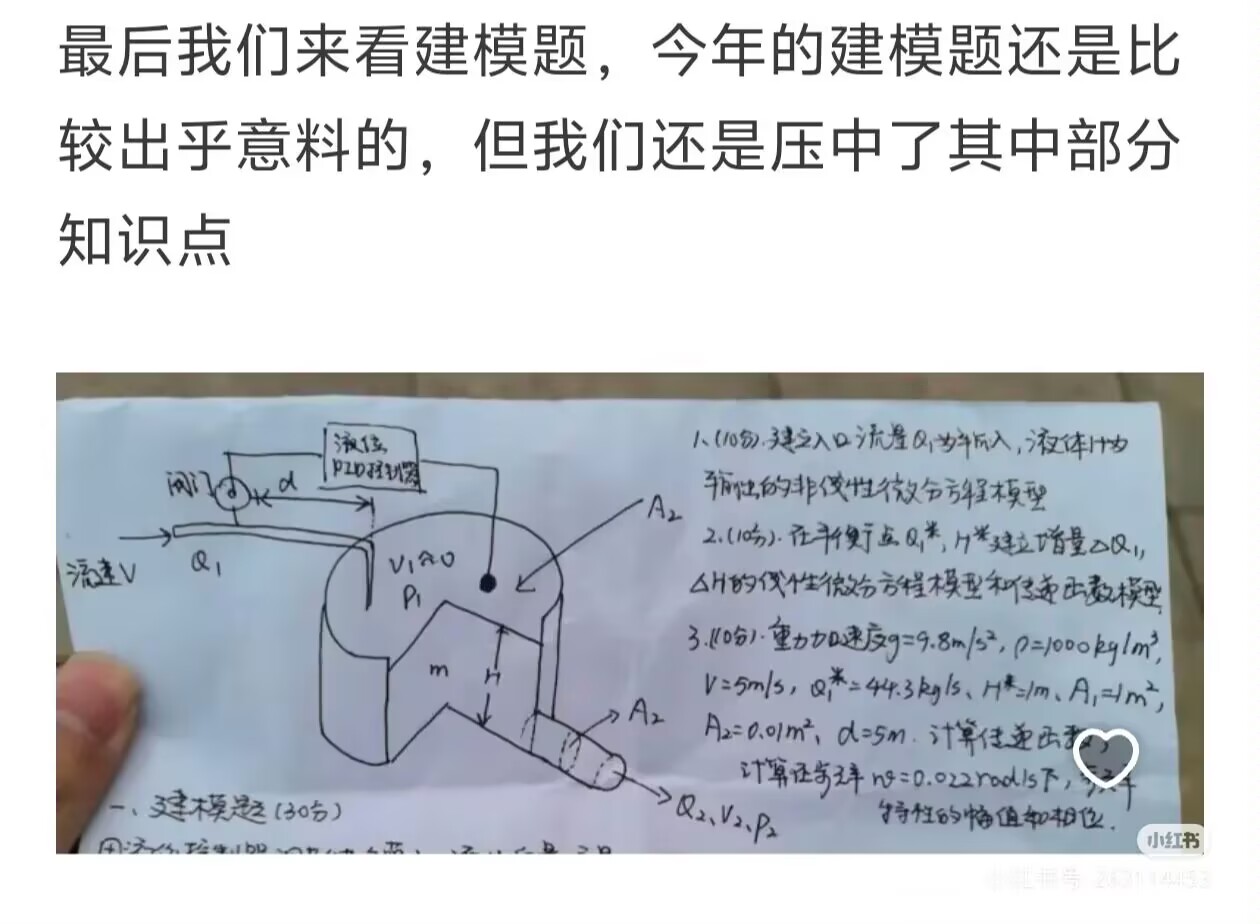 最后我们来看建模题，今年的建模题还是比
较出乎意料的，但我们还是压中了其中部分
知识点
液位
PID控制器
阀门
d
A₂
流速V
Q₁
V₁≈0
P₁
m
H
A₂
Q₂、V₂、P₂
一、建模题(30分)
1、(10分).建立入口流量Q₁为输入,液体H为
输出的非线性微分方程模型
2.(10分).在平衡点Q₁*,H*建立增量△Q₁,
△H的线性微分方程模型和传递函数模型
3.(10分).重力加速度g=9.8m/s²,ρ=1000kg/m³,
V=5m/s,Q₁*=44.3kg/s、H*=1m、A₁=1m²,
A₂=0.01m²,d=5m.计算传递函数,
计算在频率w=0.022rad/s下,
特性的幅值和相位.
小红书
小红书号